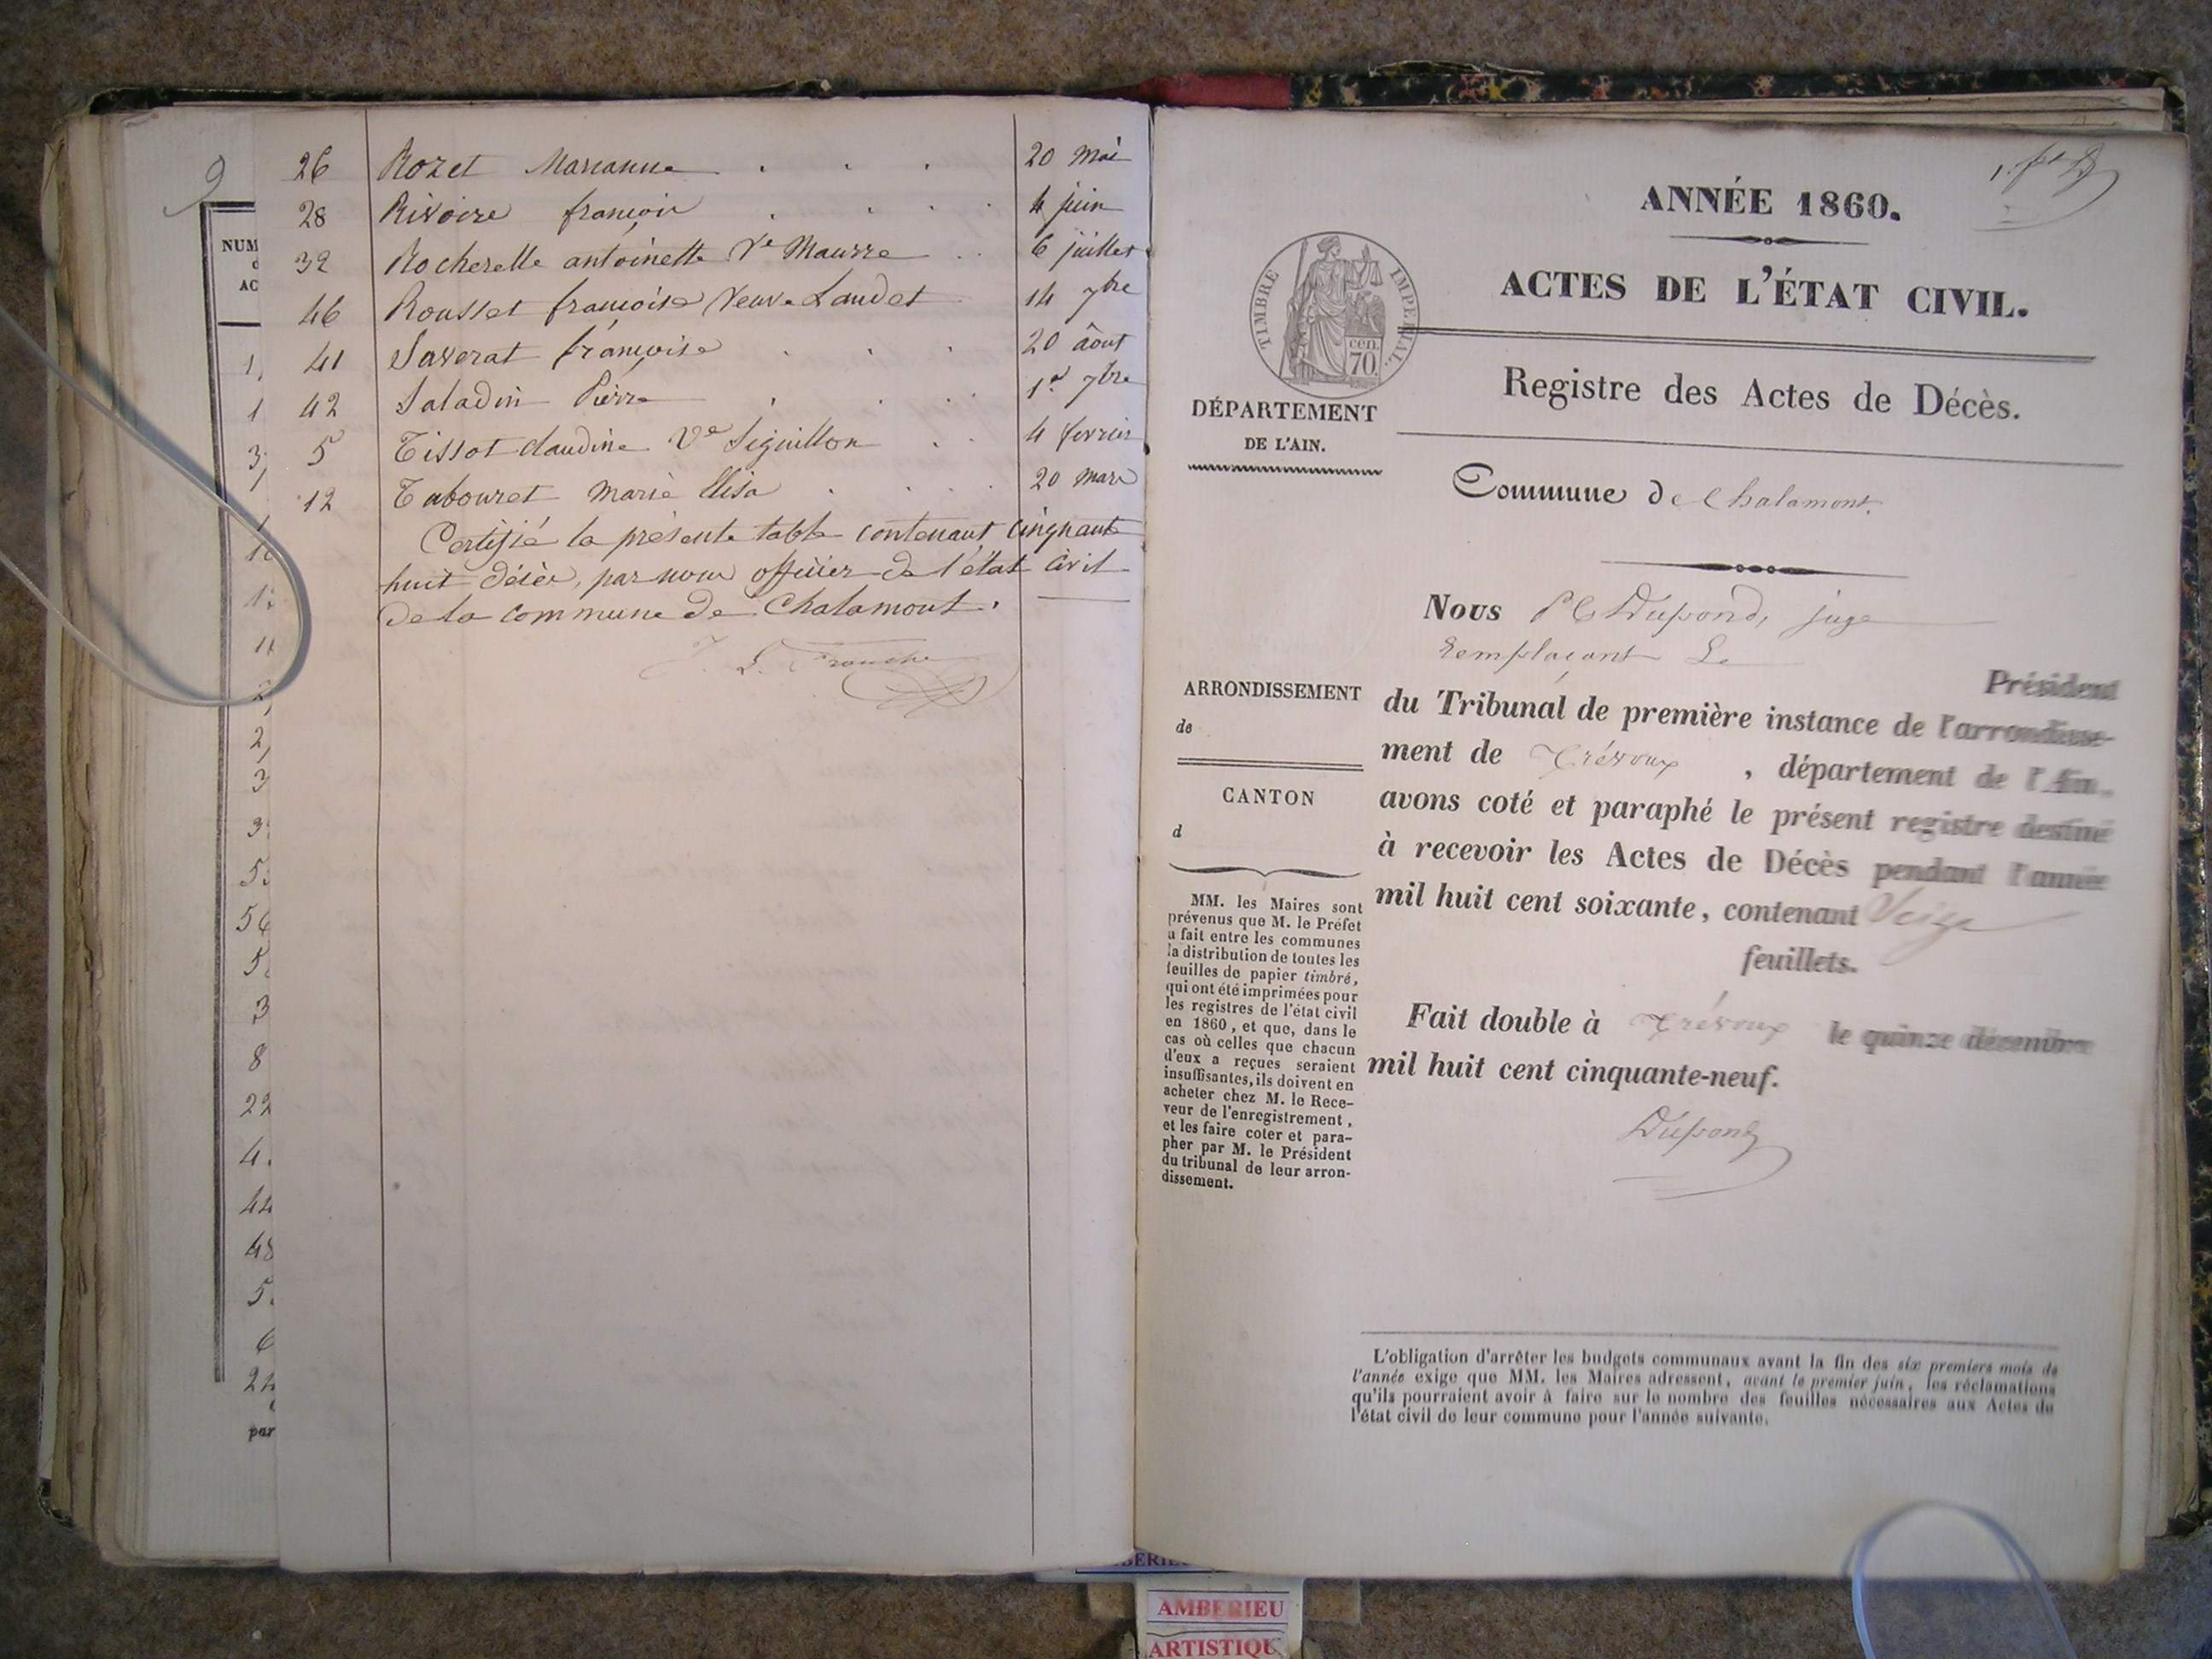 9
NUM
AC
26 Rozet Marianne 20 mai
28 Rivoire françois 4 juin
32 Rocherelle antoinette Ve Maurre 6 juillet
46 Rousset françoise Veuve Laudet 14 7bre
41 Saverat françoise 20 âout
42 Saladin Pierre 1er 7bre
5 Tissot claudine Ve Siguillon 4 fevrier
12 Tabouret marie Elisa 20 mars
Certifié la présente table contenant cinquante
huit décès, par nous officier de l'état civil
de la commune de Chalamont.
2,
3
56
3
8
22
44
48
6
24
par
ANNÉE 1860.
ACTES DE L'ÉTAT CIVIL.
TIMBRE IMPERIAL.
cen.
70.
Registre des Actes de Décès.
DÉPARTEMENT
DE L'AIN.
Commune de Chalamont.
Nous Dupond, juge
Remplaçant Le
Président
ARRONDISSEMENT
de
du Tribunal de première instance de l'arrondisse-
ment de Trévoux, département de l'Ain,
CANTON
d
avons coté et paraphé le présent registre destiné
à recevoir les Actes de Décès pendant l'année
mil huit cent soixante, contenant Seize
feuillets.
Fait double à Trévoux le quinze décembre
mil huit cent cinquante-neuf.
Dupond
MM. les Maires sont
prévenus que M. le Préfet
a fait entre les communes
la distribution de toutes les
feuilles de papier timbré,
qui ont été imprimées pour
les registres de l'état civil
en 1860, et que, dans le
cas où celles que chacun
d'eux a reçues seraient
insuffisantes, ils doivent en
acheter chez M. le Rece-
veur de l'enregistrement,
et les faire coter et para-
pher par M. le Président
du tribunal de leur arron-
dissement.
L'obligation d'arrêter les budgets communaux avant la fin des six premiers mois de
l'année exige que MM. les Maires adressent, avant le premier juin, les réclamations
qu'ils pourraient avoir à faire sur le nombre des feuilles nécessaires aux Actes de
l'état civil de leur commune pour l'année suivante.
AMBERIEU
ARTISTIQU